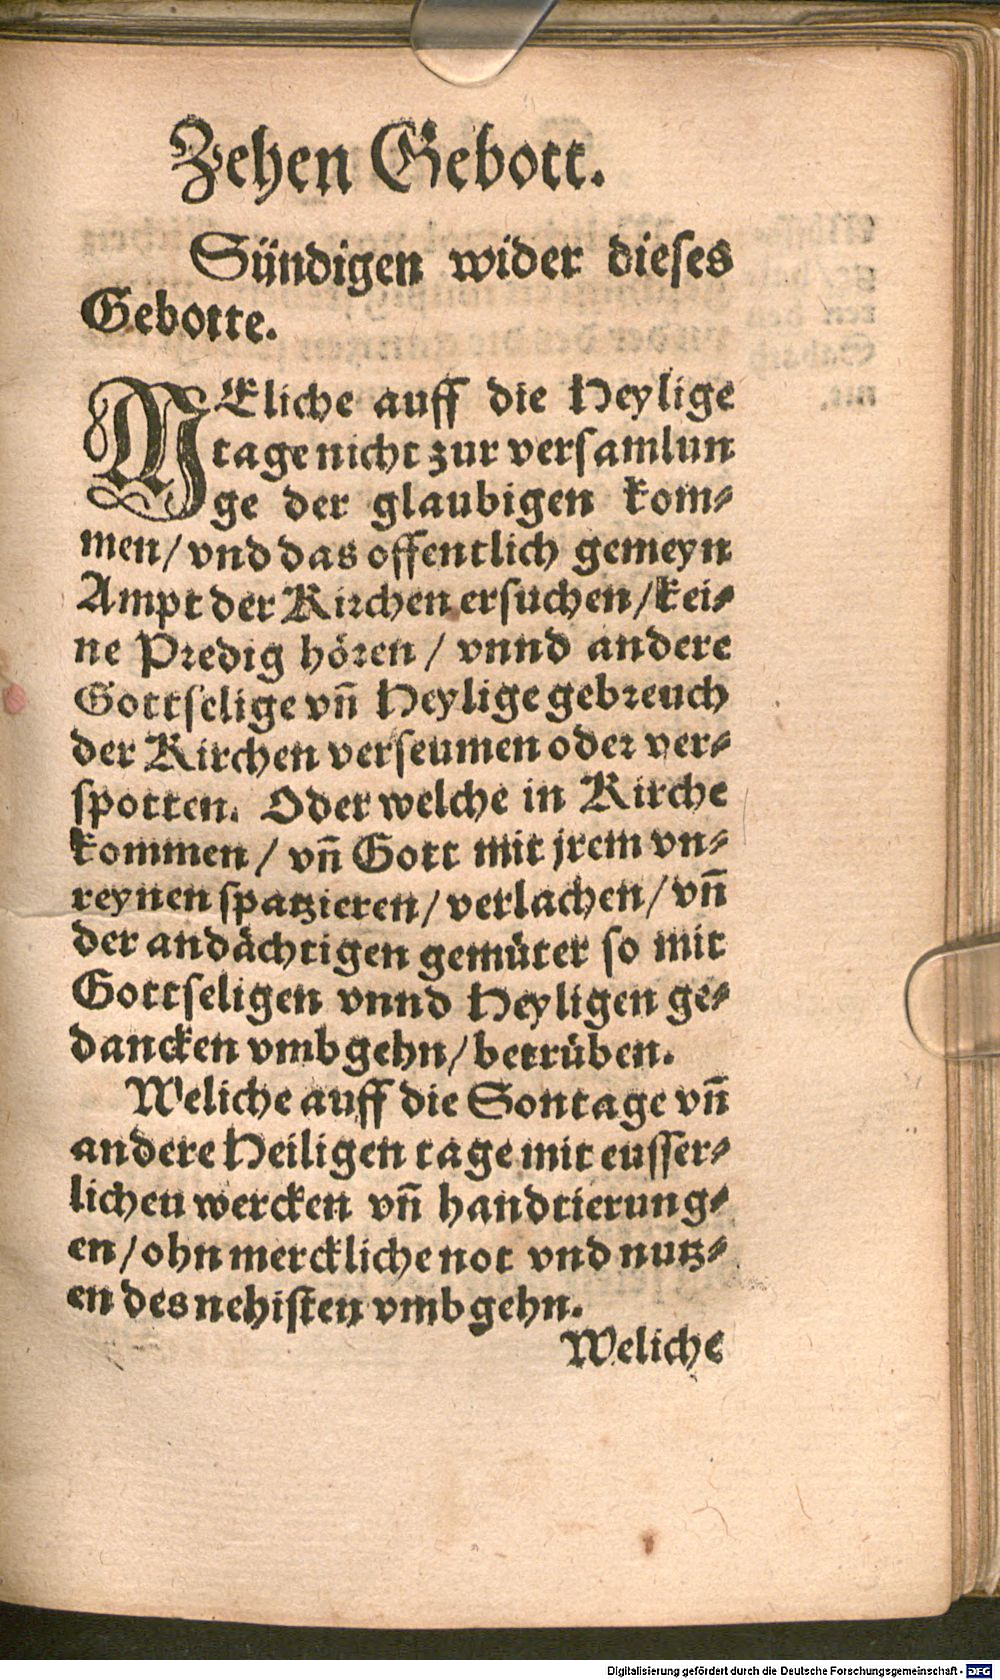 Zehen Gebott.
Sündigen wider dieses
Gebotte.
WEliche auff die Heylige
tage nicht zur versamlun
ge der glaubigen kom⸗
men/ vnd das offentlich gemeyn
Ampt der Kirchen ersuchen/ kei⸗
ne Predig hören/ vnnd andere
Gottselige vñ Heylige gebreuch
der Kirchen verseumen oder ver⸗
spotten. Oder welche in Kirche
kommen/ vñ Gott mit jrem vn⸗
reynen spatzieren/ verlachen/ vñ
der andächtigen gemüter so mit
Gottseligen vnnd Heyligen ge⸗
dancken vmbgehn/ betrüben.
Weliche auff die Sontage vñ
andere Heiligen tage mit eusser⸗
lichen wercken vñ handtierung⸗
en/ ohn merckliche not vnd nutz⸗
en des nehisten vmbgehn.
Weliche
Digitalisierung gefördert durch die Deutsche Forschungsgemeinschaft - DFG